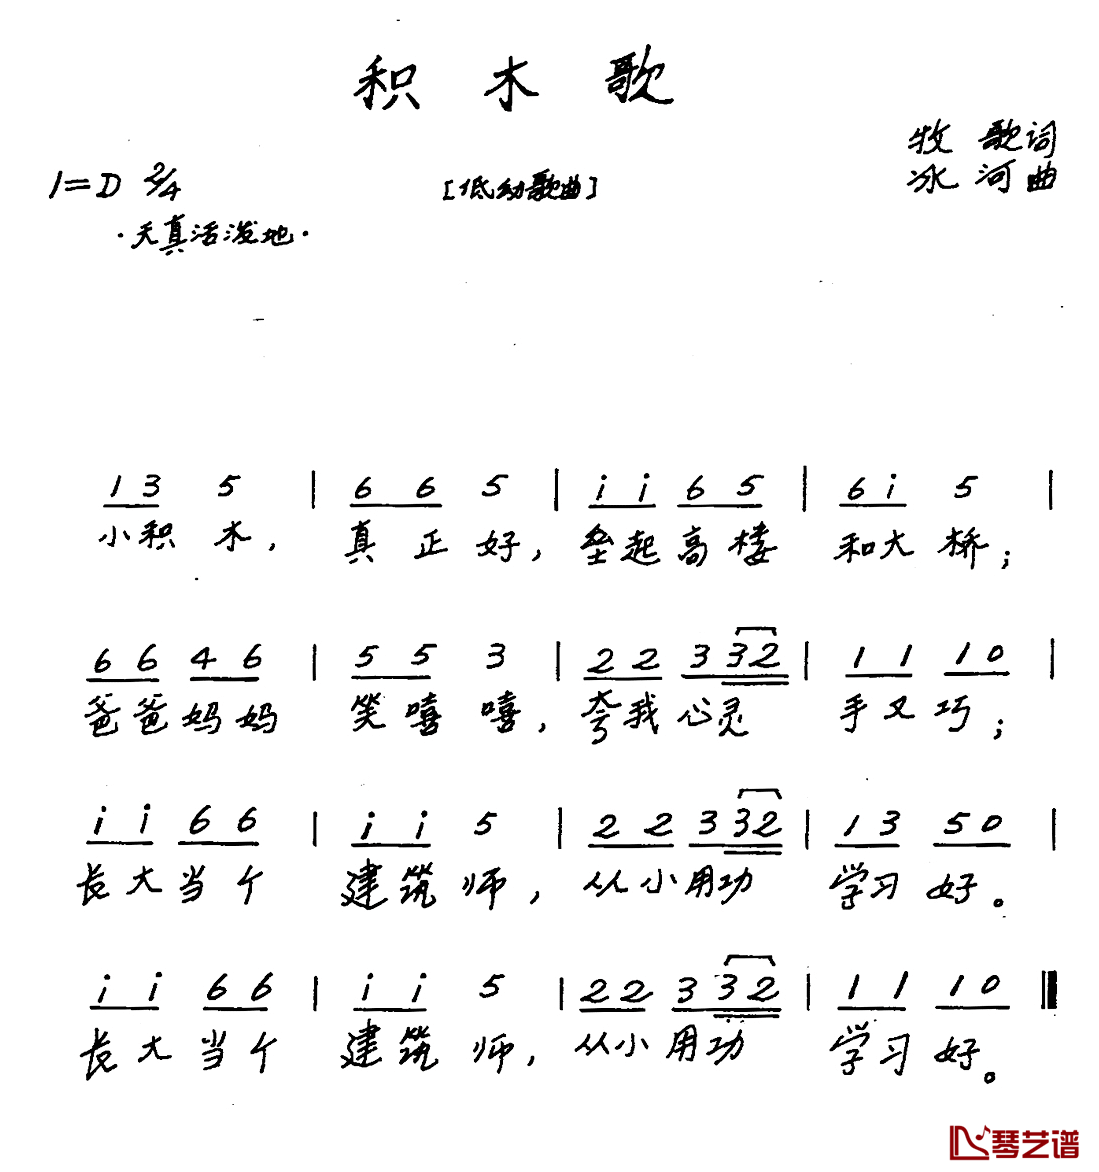 积木歌
牧歌词
1=D 2/4 [低幼歌曲] 冰河曲
·天真活泼地·
1 3 5 | 6 6 5 | i i 6 5 | 6 i 5 |
小积木，真正好，垒起高楼和大桥；
6 6 4 6 | 5 5 3 | 2 2 3 3 2 | 1 1 1 0 |
爸爸妈妈笑嘻嘻，夸我心灵手又巧；
i i 6 6 | i i 5 | 2 2 3 3 2 | 1 3 5 0 |
长大当个建筑师，从小用功学习好。
i i 6 6 | i i 5 | 2 2 3 3 2 | 1 1 1 0 ‖
长大当个建筑师，从小用功学习好。
琴艺谱